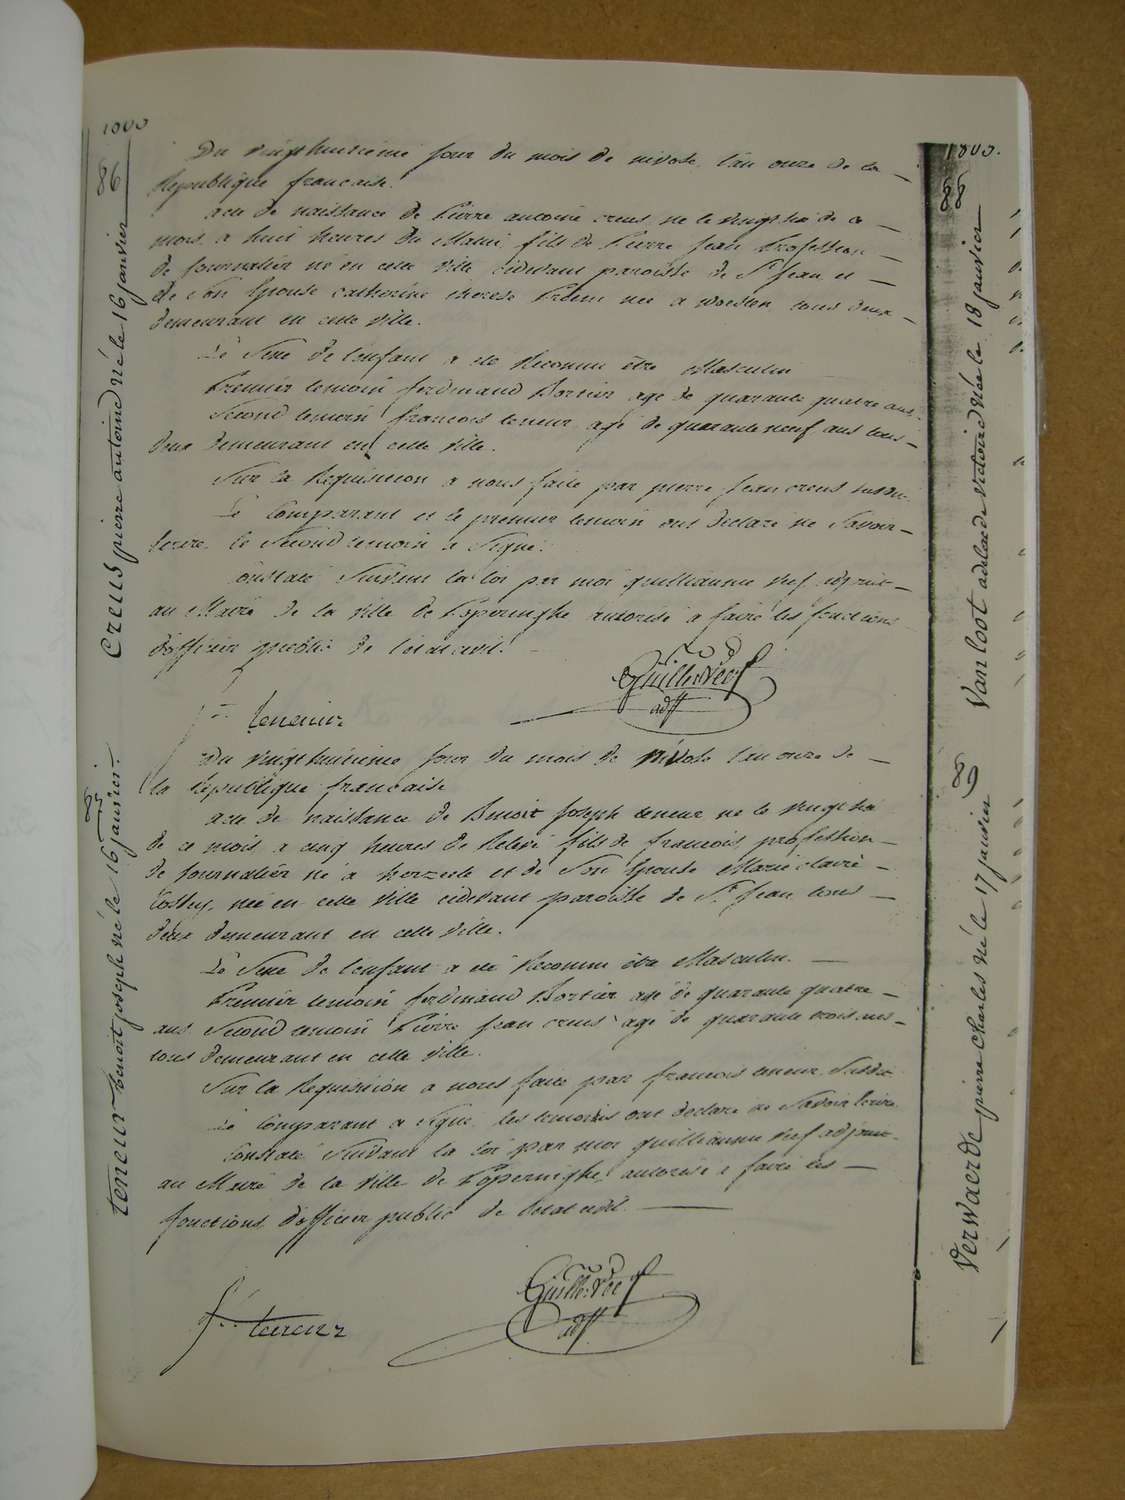 86
Creus pierre antoine né le 16 janvier
Du vingthuitiéme jour du mois de nivose l'an onze de la
Republique francaise.
acte de naissance de Pierre antoine creus ne le vingt six de ce
mois a huit heures du Matin fils de Pierre Jean Profession
de journalier né en cette ville cidevant paroisse de St Jean et
de Son Epouse catherine therese née a woesten tous deux
demeurant en cette ville.
Le Sexe de l'enfant a eté Reconnu être Masculin
Premier temoin ferdinand Bortier agé de quarante quatre ans
Second temoin francois teneur agé de quarante neuf ans tous
deux demeurant en cette ville.
Sur la Requisition a nous faite par pierre Jean creus susdit
Le Comparant et le premier temoin ont declaré ne Savoir
Ecrire le Second temoin a Signé.
Constaté Suivant la loi par moi guilliaume Vef adjoint
au Maire de la ville de Poperinghe autorisé a faire les fonctions
d'officier public de l'etat civil.
Guille: Veef
adjt
teneur
87
Teneur benoit joseph né le 16 janvier.
Du vingthuitiéme jour du mois de nivose l'an onze de
la Republique francaise
acte de naissance de Benoit Joseph teneur ne le vingt six
de ce mois a cinq heures de Relevé fils de francois profession
de journalier né a herzeele et de Son Epouse Marie claire
née en cette ville cidevant paroisse de St Jean tous
deux demeurant en cette ville.
Le Sexe de l'enfant a eté Reconnu être Masculin.
Premier temoin ferdinand Bortier agé de quarante quatre
ans Second temoin Pierre Jean creus agé de quarante trois ans
tous demeurant en cette ville.
Sur la Requisition a nous faite par francois teneur Susdit
Le Comparant a signé les temoins ont declaré ne Savoir Ecrire
Constaté Suivant la loi par moi guilliaume Vef adjoint
au Maire de la ville de Poperinghe autorisé a faire les
fonctions d'officier public de l'etat civil.
Guille: Veef
adjt
fs teneur
88
Van loot adelaede victoire Née le 18 janvier
89
Verwaerde pierre charles né le 17 janvier